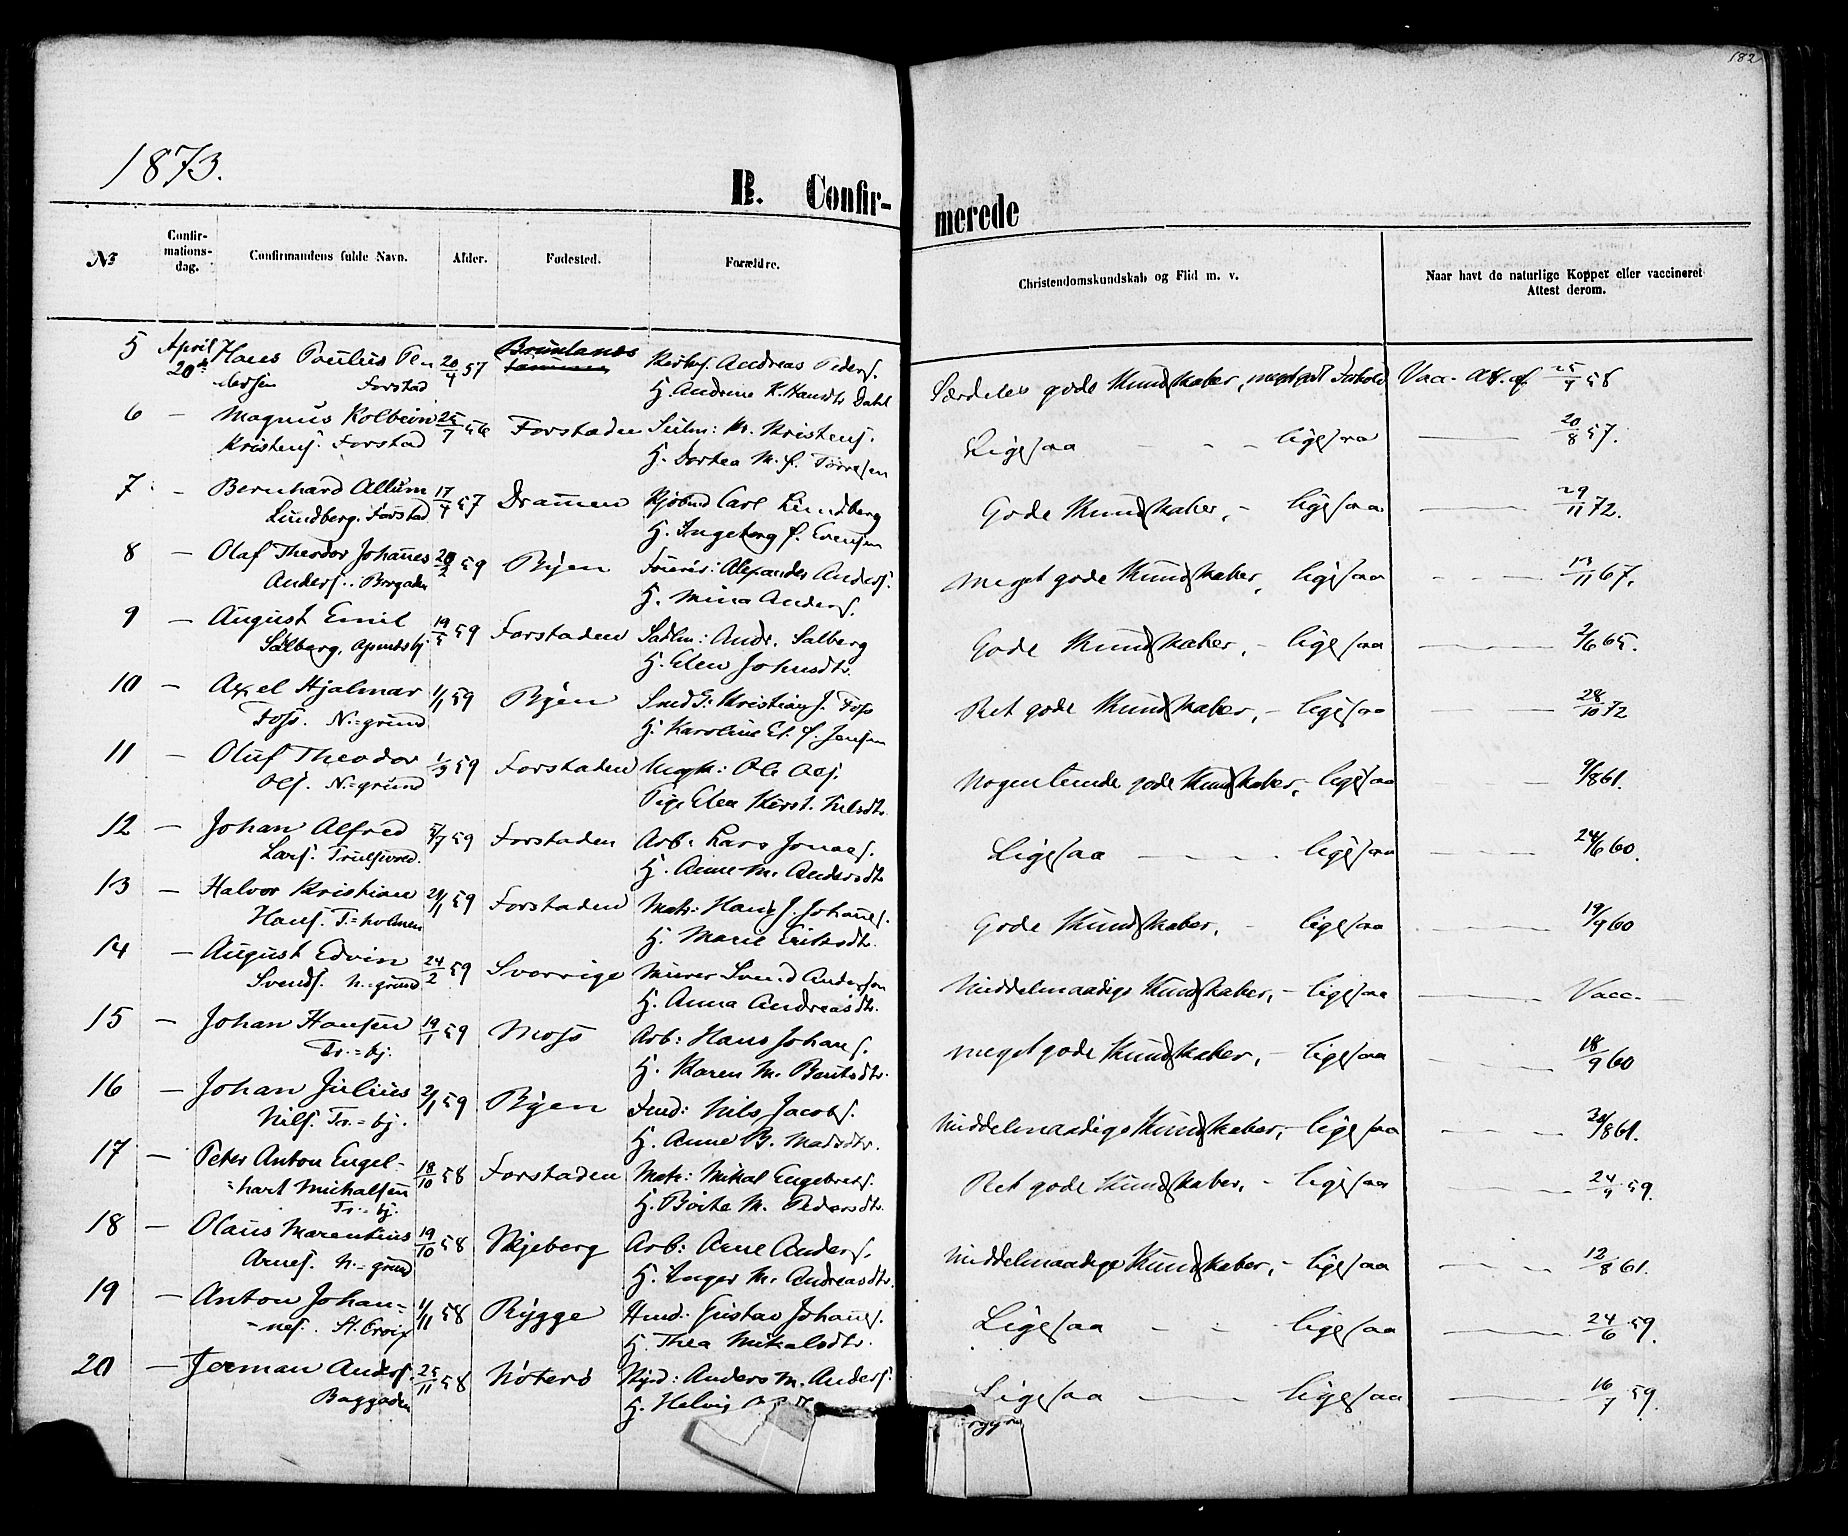 182
1873.
B. Confir-
merede
№
Confir-
mations-
dag.
Confirmandens fulde Navn.
Alder.
Fødested.
Forældre.
Christendomskundskab og Flid m. v.
Naar havt de naturlige Kopper eller vaccineret
Attest derom.
5 April Hans Paulus Pe 20/4 57 Brunlanes Andreas Peders.
20de dersen Forstad H. Andrine K. Hansdtr Dahl
Særdeles gode Kundskaber, Forhold Vacc. Att. af 25/4 58
6 — Magnus Kolbein 25/7 56 Forstaden Seilm: Kr. Kristens.
Kristens. Forstad H. Dortea M. f. Tørresen
Ligesaa - - - ligesaa — 20/8 57.
7 — Bernhard Allum 17/4 57 Dramen Kjøbmd Carl Lundberg
Lundberg. Forstad H. Ingeborg f. Evensen
Gode Kundskaber, - ligesaa — 29/11 72.
8 — Olaf Theodor Johanes 59 Byen Alexander Anders.
Anders. H. Mina Anders.
Meget gode Kundskaber, ligesaa — 13/11 67.
9 — August Emil 19/5 59 Forstaden Sadlm: Andr. Salberg
Salberg. H. Elen Johnsdtr.
Gode Kundskaber, - ligesaa — 2/6 65.
10 — Axel Hjalmar 1/1 59 Byen Smed G: Kristian J. Foss
Foss. N.=grund. H. Karoline El. f. Jensen
Ret gode Kundskaber, - ligesaa — 28/10 72
11 — Oluf Theodor 1/3 59 Forstaden Ungk: Ole Ols.
Ols. N.=grund Pige Elen Kirst. Nilsdtr
Nogenlunde gode Kundskaber, - ligesaa - 9/8 61.
12 — Johan Alfred 5/7 59 Forstaden Arb: Lars Jonas.
Lars. H. Anne M. Andersdtr
Ligesaa — ligesaa — 24/6 60.
13 — Halvor Kristian 59 Forstaden Matr: Hans J. Johanes.
Hans. T.=holmen H. Marie Eriksdtr.
Gode Kundskaber, - ligesaa — 19/9 60
14 — August Edvin 24/2 59 Sverrige Murer Svend Anderson
Svends. N.=grund H. Anna Andreasdtr.
Middelmaadige Kundskaber, - ligesaa — Vacc.
15 — Johan Hansen 19/1 59 Moss Arb: Hans Johans.
Tr.=bj. H. Karen M. Bentsdtr.
Meget gode Kundskaber, - ligesaa — 18/9 60
16 — Johan Julius 2/1 59 Byen Nils Jacobs.
Nils. Tr.=bj. H. Anne B. Madsdtr.
Middelmaadige Kundskaber, - ligesaa — 61.
17 — Peter Anton Engel- 18/10 58 Forstaden Matr: Mikal Engebrets.
=hart Michalsen H. Birte M. Pedersdtr.
Tr.=bj.
Ret gode Kundskaber, - ligesaa — 24/9 59.
18 — Olaus Marentius 19/10 58 Skjeberg Arb: Arne Anders.
Arnes. N.=grund H. Inger M. Andreasdtr.
Middelmaadige Kundskaber, - ligesaa — 12/8 61.
19 — Anton Johan= 1/11 58 Rygge Gustav Johanes.
=nes. St. Croix H. Thea Mikalsdtr.
Ligesaa - - ligesaa — 24/6 59.
20 — Jerman Anders. 25/11 58 Nøterø Anders M. Anders.
Baggaden H. Helvig
Ligesaa — ligesaa — 16/7 59.